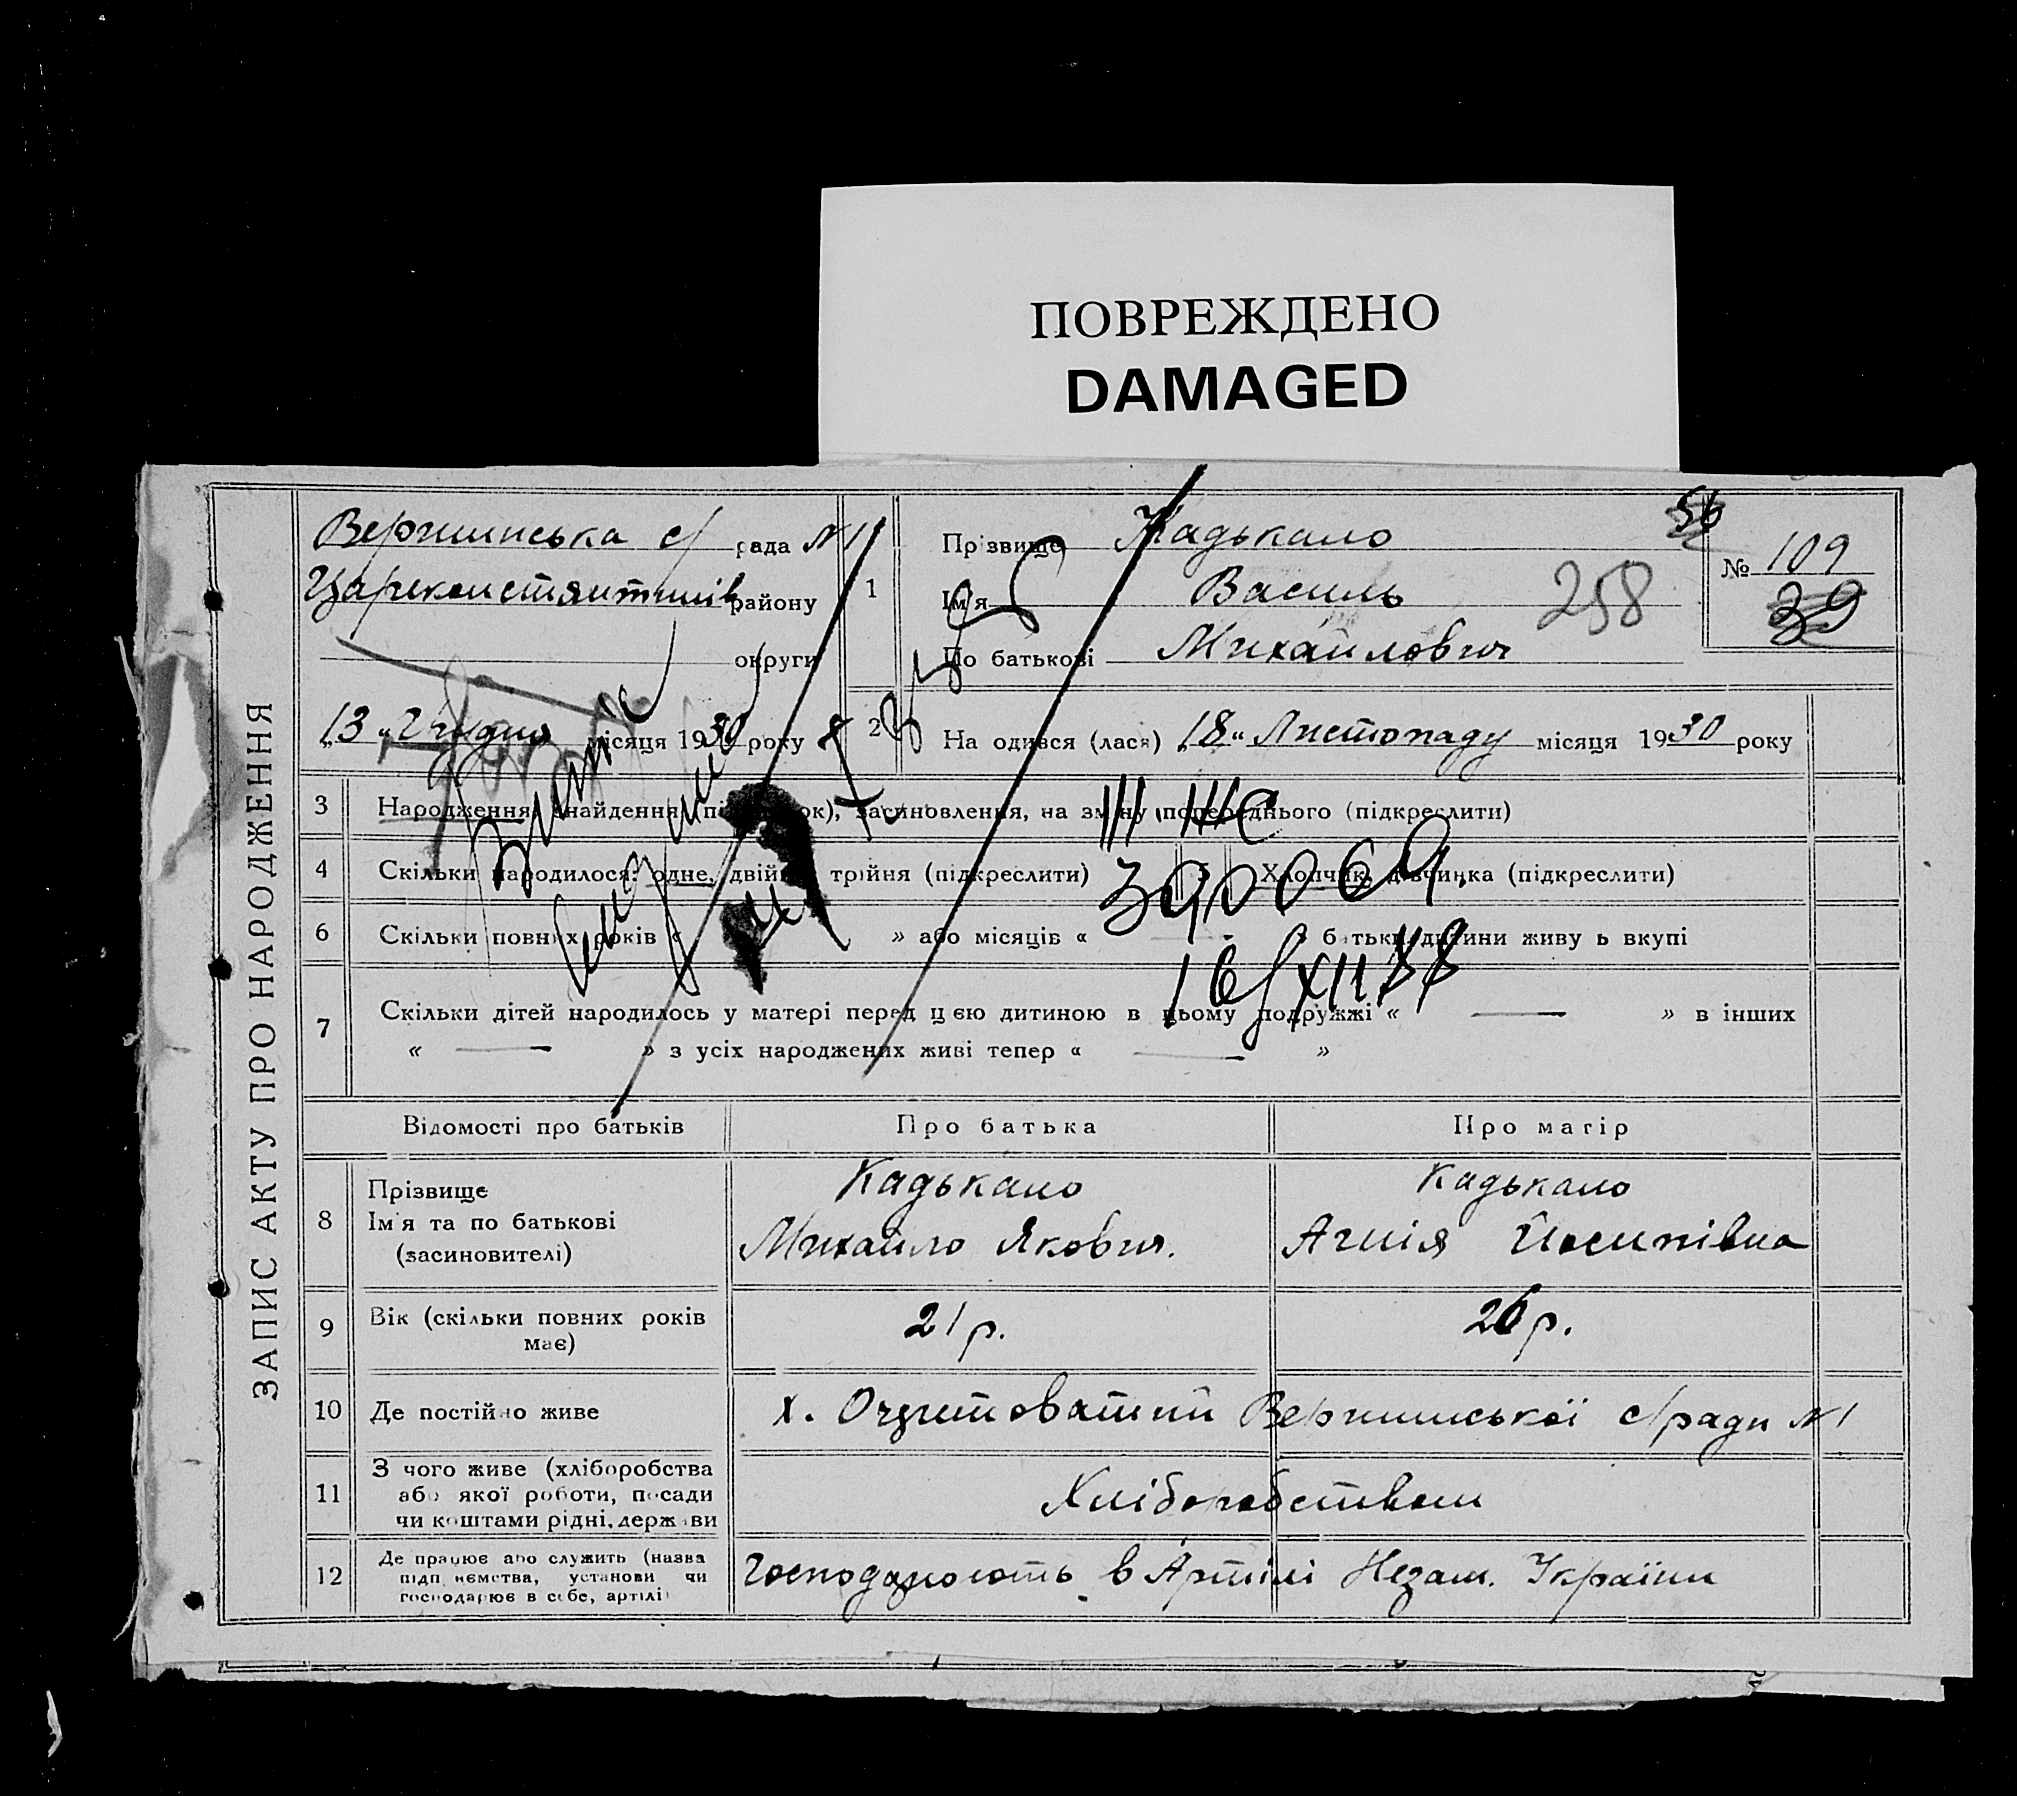 ПОВРЕЖДЕНО
DAMAGED
ЗАПИС АКТУ ПРО НАРОДЖЕННЯ
Вершинська с/ рада №1
Царекомстянтинів району
округи
13 " Грудня місяця 1930 року
1 Прізвище Кадькало
Ім'я Василь
По батькові Михайлович
56
258
№ 109
39
2 На одився (лася) "18" Листопаду місяця 1930 року
3 Народження, знайдення (під ок), засиновлення, на зміну попереднього (підкреслити)
4 Скільки народилося: одне, двійня трійня (підкреслити) Хлопчик, дівчинка (підкреслити)
6 Скільки повних років « » або місяців « — батьки дитини живу ь вкупі
7 Скільки дітей народилось у матері перед цією дитиною в цьому подружжі « — » в інших
« — » з усіх народжених живі тепер « — »
III ЖС
390069
16/XII 88
Відомості про батьків Про батька Про матір
8 Прізвище
Ім'я та по батькові
(засиновителі)
Кадькало
Михайло Якович.
Кадькало
Агнія Йосипівна
9 Вік (скільки повних років
має)
21 р.
26 р.
10 Де постійно живе х. Вершинської с/ради №1
11 З чого живе (хліборобства
або якої роботи, посади
чи коштами рідні, держави
Хліборобством
12 Де працює або служить (назва
підп иємства, установи чи
господарює в себе, артілі)
Господарюють в Артілі Незам. України